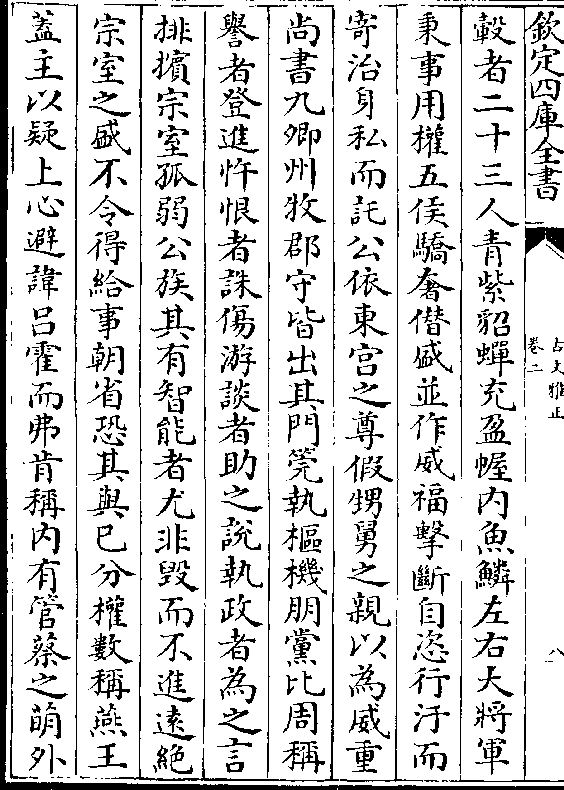 欽定四庫全書
古文雅正
卷二
八
轂者二十三人青紫貂蟬充盈幄内魚鱗左右大將軍
秉事用權五侯驕奢僣盛並作威福擊斷自恣行汙而
寄治身私而託公依東宫之尊假甥舅之親以為威重
尚書九卿州牧郡守皆出其門筦執樞機朋黨比周稱
譽者登進忤恨者誅傷游談者助之説執政者為之言
排擯宗室孤弱公族其有智能者尤非毁而不進逺絶
宗室之盛不令得給事朝省恐其與已分權數稱燕王
蓋主以疑上心避諱吕霍而弗肯稱内有管蔡之萌外